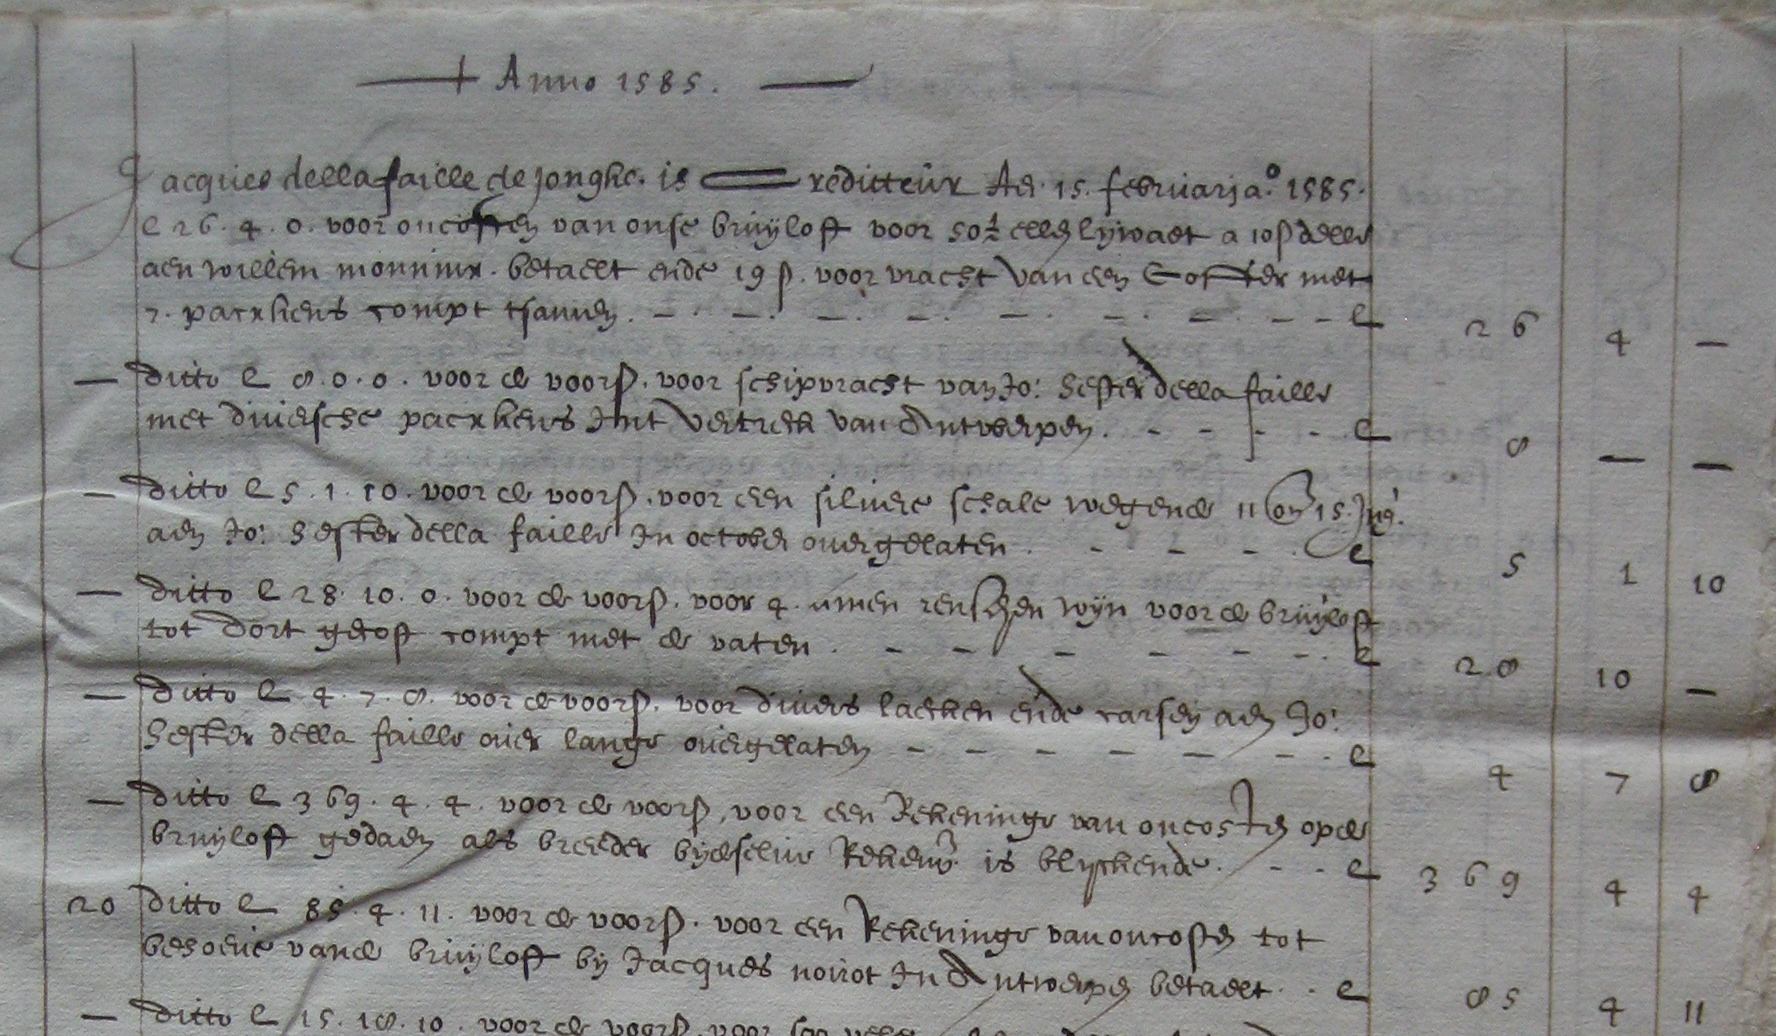 + Anno 1585.
Jacques della faille de Jonghe. is Crediteur Adi. 15. februarij a.o 1585.
£ 26. 4. 0. voor oncosten van onse bruyloft voor 50½ ellen lywaet a 10ß delle
aen willem monninx. betaelt ende 19 ß. voor vracht van een Coffer met
2. packxkens compt tsamen. £ 26 4 —
— ditto £ 8. 0. 0. voor de voorß. voor schipvracht van Jo: hester della faille
met diversche packxkens Int vertreck van Antwerpen. £ 8 — —
— ditto £ 5. 1. 10. voor de voorß. voor een silvere schale wegende 11 on 15. Ing.
aen Jo: hester della faille In october overgelaten. £ 5 1 10
— ditto £ 28. 10. 0. voor de voorß. voor 4. amen renschen wyn voor de bruyloft
tot dort gecoft compt met de vaten. £ 28 10 —
— ditto £ 4. 7. 8. voor de voorß. voor divers laecken ende carsey aen Jo:
hester della faille over lange overgelaten £ 4 7 8
— ditto £ 369. 4. 4. voor de voorß. voor een Rekeninge van oncosten op de
bruyloft gedaen als breeder by de selve Reken is blyckende. £ 369 4 4
20 ditto £ 85. 4. 11. voor de voorß. voor een Rekeninge van oncosten tot
behoeve vande bruyloft by Jacques noirot In Antwerpen betaelt. £ 85 4 11
— ditto £ 15. 18. 10. voor de voorß. voor soo vele